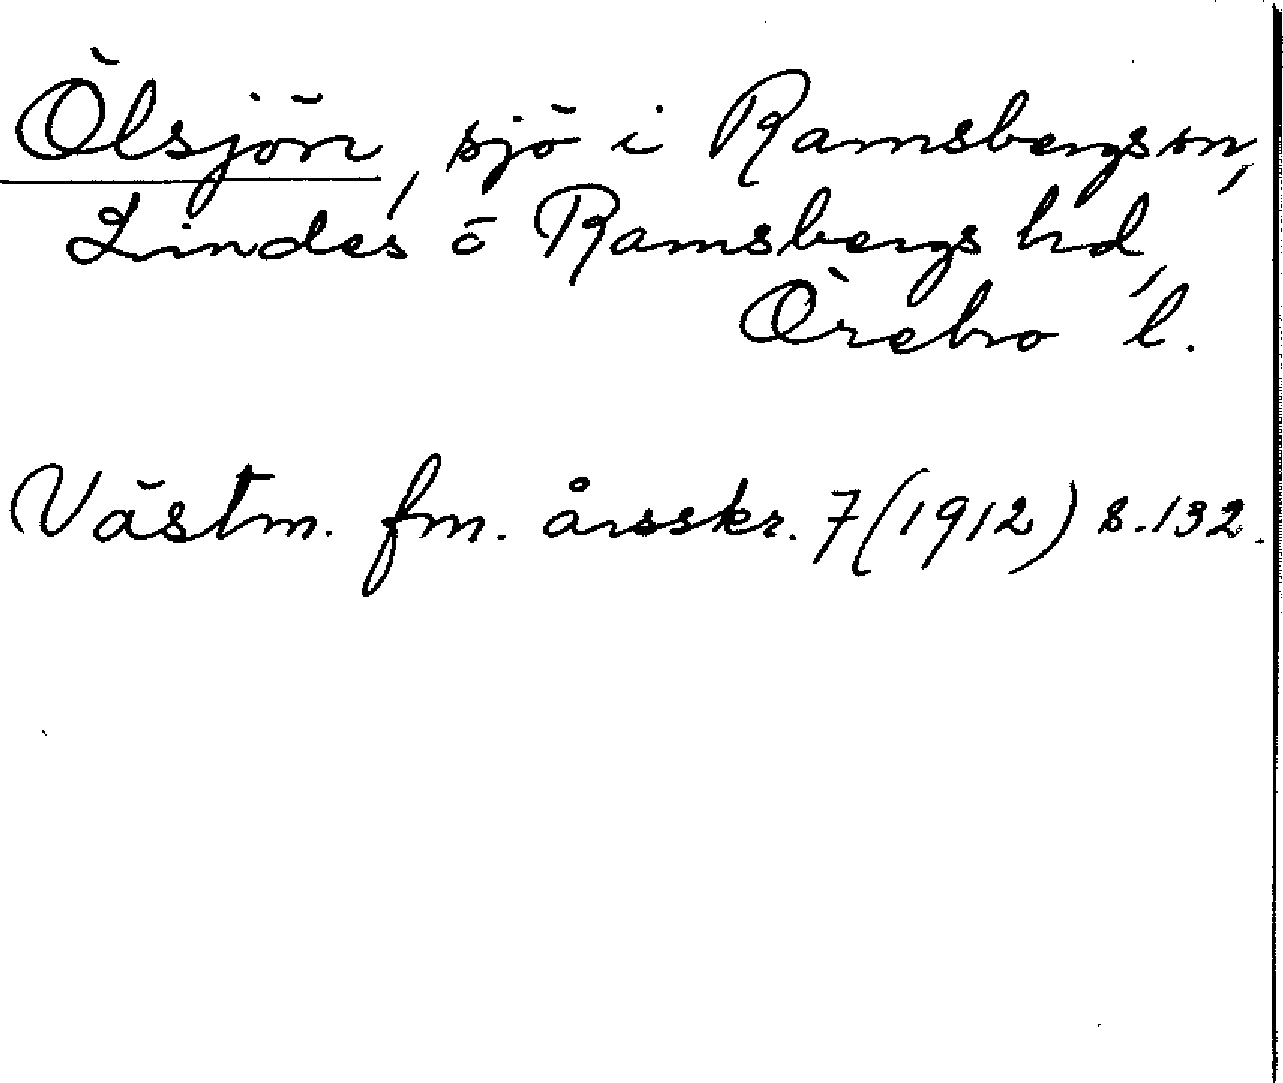 Ölsjön, sjö i Ramsbergs sn,
Lindes o Ramsbergs hd,
Örebro l.
Västm. fm. årsskr. 7(1912) s. 132.